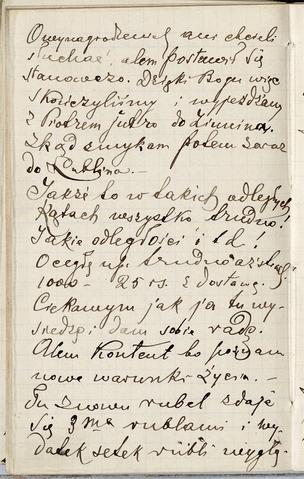 O wynagrodzeniu ani chcieli
słuchać, alem postawił się
stanowczo. Dzięki Bogu więc
skończyliśmy i wyjeżdżam
z Piotrem jutro do Zimina.
Zkąd zmykam potem zaraz
do Lublina.—
Jakże to w takich odległych
kątach wszystko trudno!
Jakie odległości i t d!
O cegłę np. trudno aż strach
1000 — 25 rs. z dostawą.
Ciekawym jak ja tu wy-
siedzę i dam sobie radę.
Alem kontent bo poznam
nowe warunki życia.—
Tu znowu rubel zdaje
się 3ma rublami i wy-
datek setek rubli